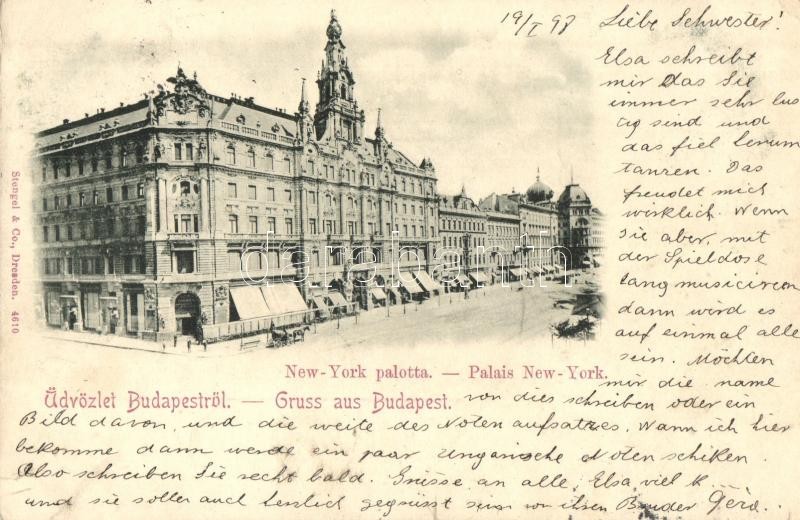 19/I 98 Liebe Schwester!
Elsa schreibt
mir das Sie
immer sehr lus
tig sind und
das fiel herum
tanzen. Das
freudet mich
wirklich. Wenn
Sie aber, mit
der Spieldose
lang musiciren
dann wird es
auf einmal alle
sein. Möchten
mir die name
von dies schreiben oder ein
Bild davon, und die weite des Noten aufsatzes. Wann ich hier
bekomme dann werde ein paar Ungarische Noten schiken.
Also schreiben Sie recht bald. Grüsse an alle, Elsa viel K
und sie soller auch herzlich gegrüsst sein von ihren Bruder
New-York palotta. — Palais New-York.
Üdvözlet Budapestről. — Gruss aus Budapest.
Stengel & Co., Dresden. 4610
darabanth.com